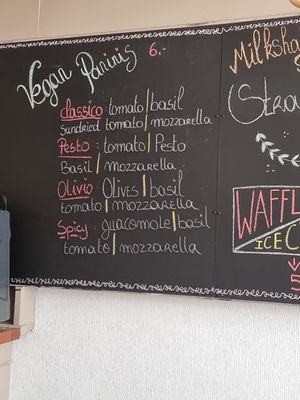 Vegan Paninis 6,-
classico: tomato/basil
sundried tomato/mozzarella
Pesto: tomato/Pesto
Basil/mozzarella
Olivio: Olives/basil
tomato/mozzarella
Spicy: guacomole/basil
tomato/mozzarella
Milksha
(Stra
WAFFL
ICE C